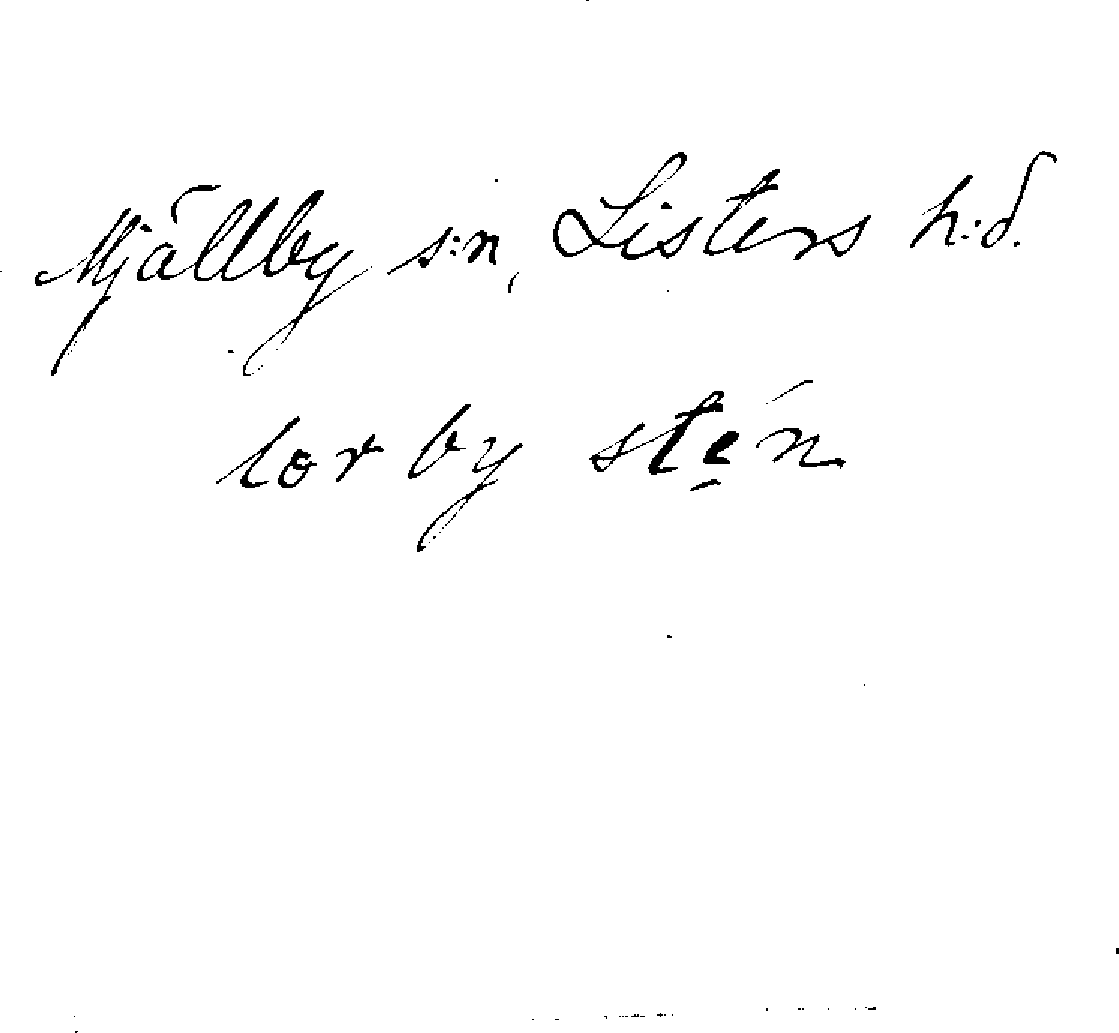 Mjällby s:n, Listers h:d.
lor by stę́n